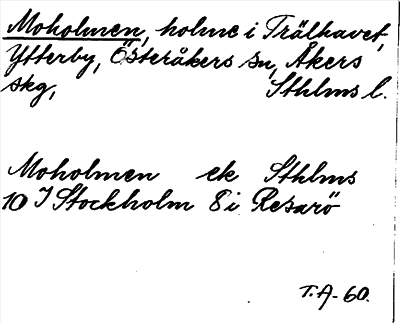 Moholmen, holme i Trälhavet,
Ytterby, Österåkers sn, Åkers
skg, Sthlms l.
Moholmen ek Sthlms
10 I Stockholm 8 i Resarö
T.A-60.